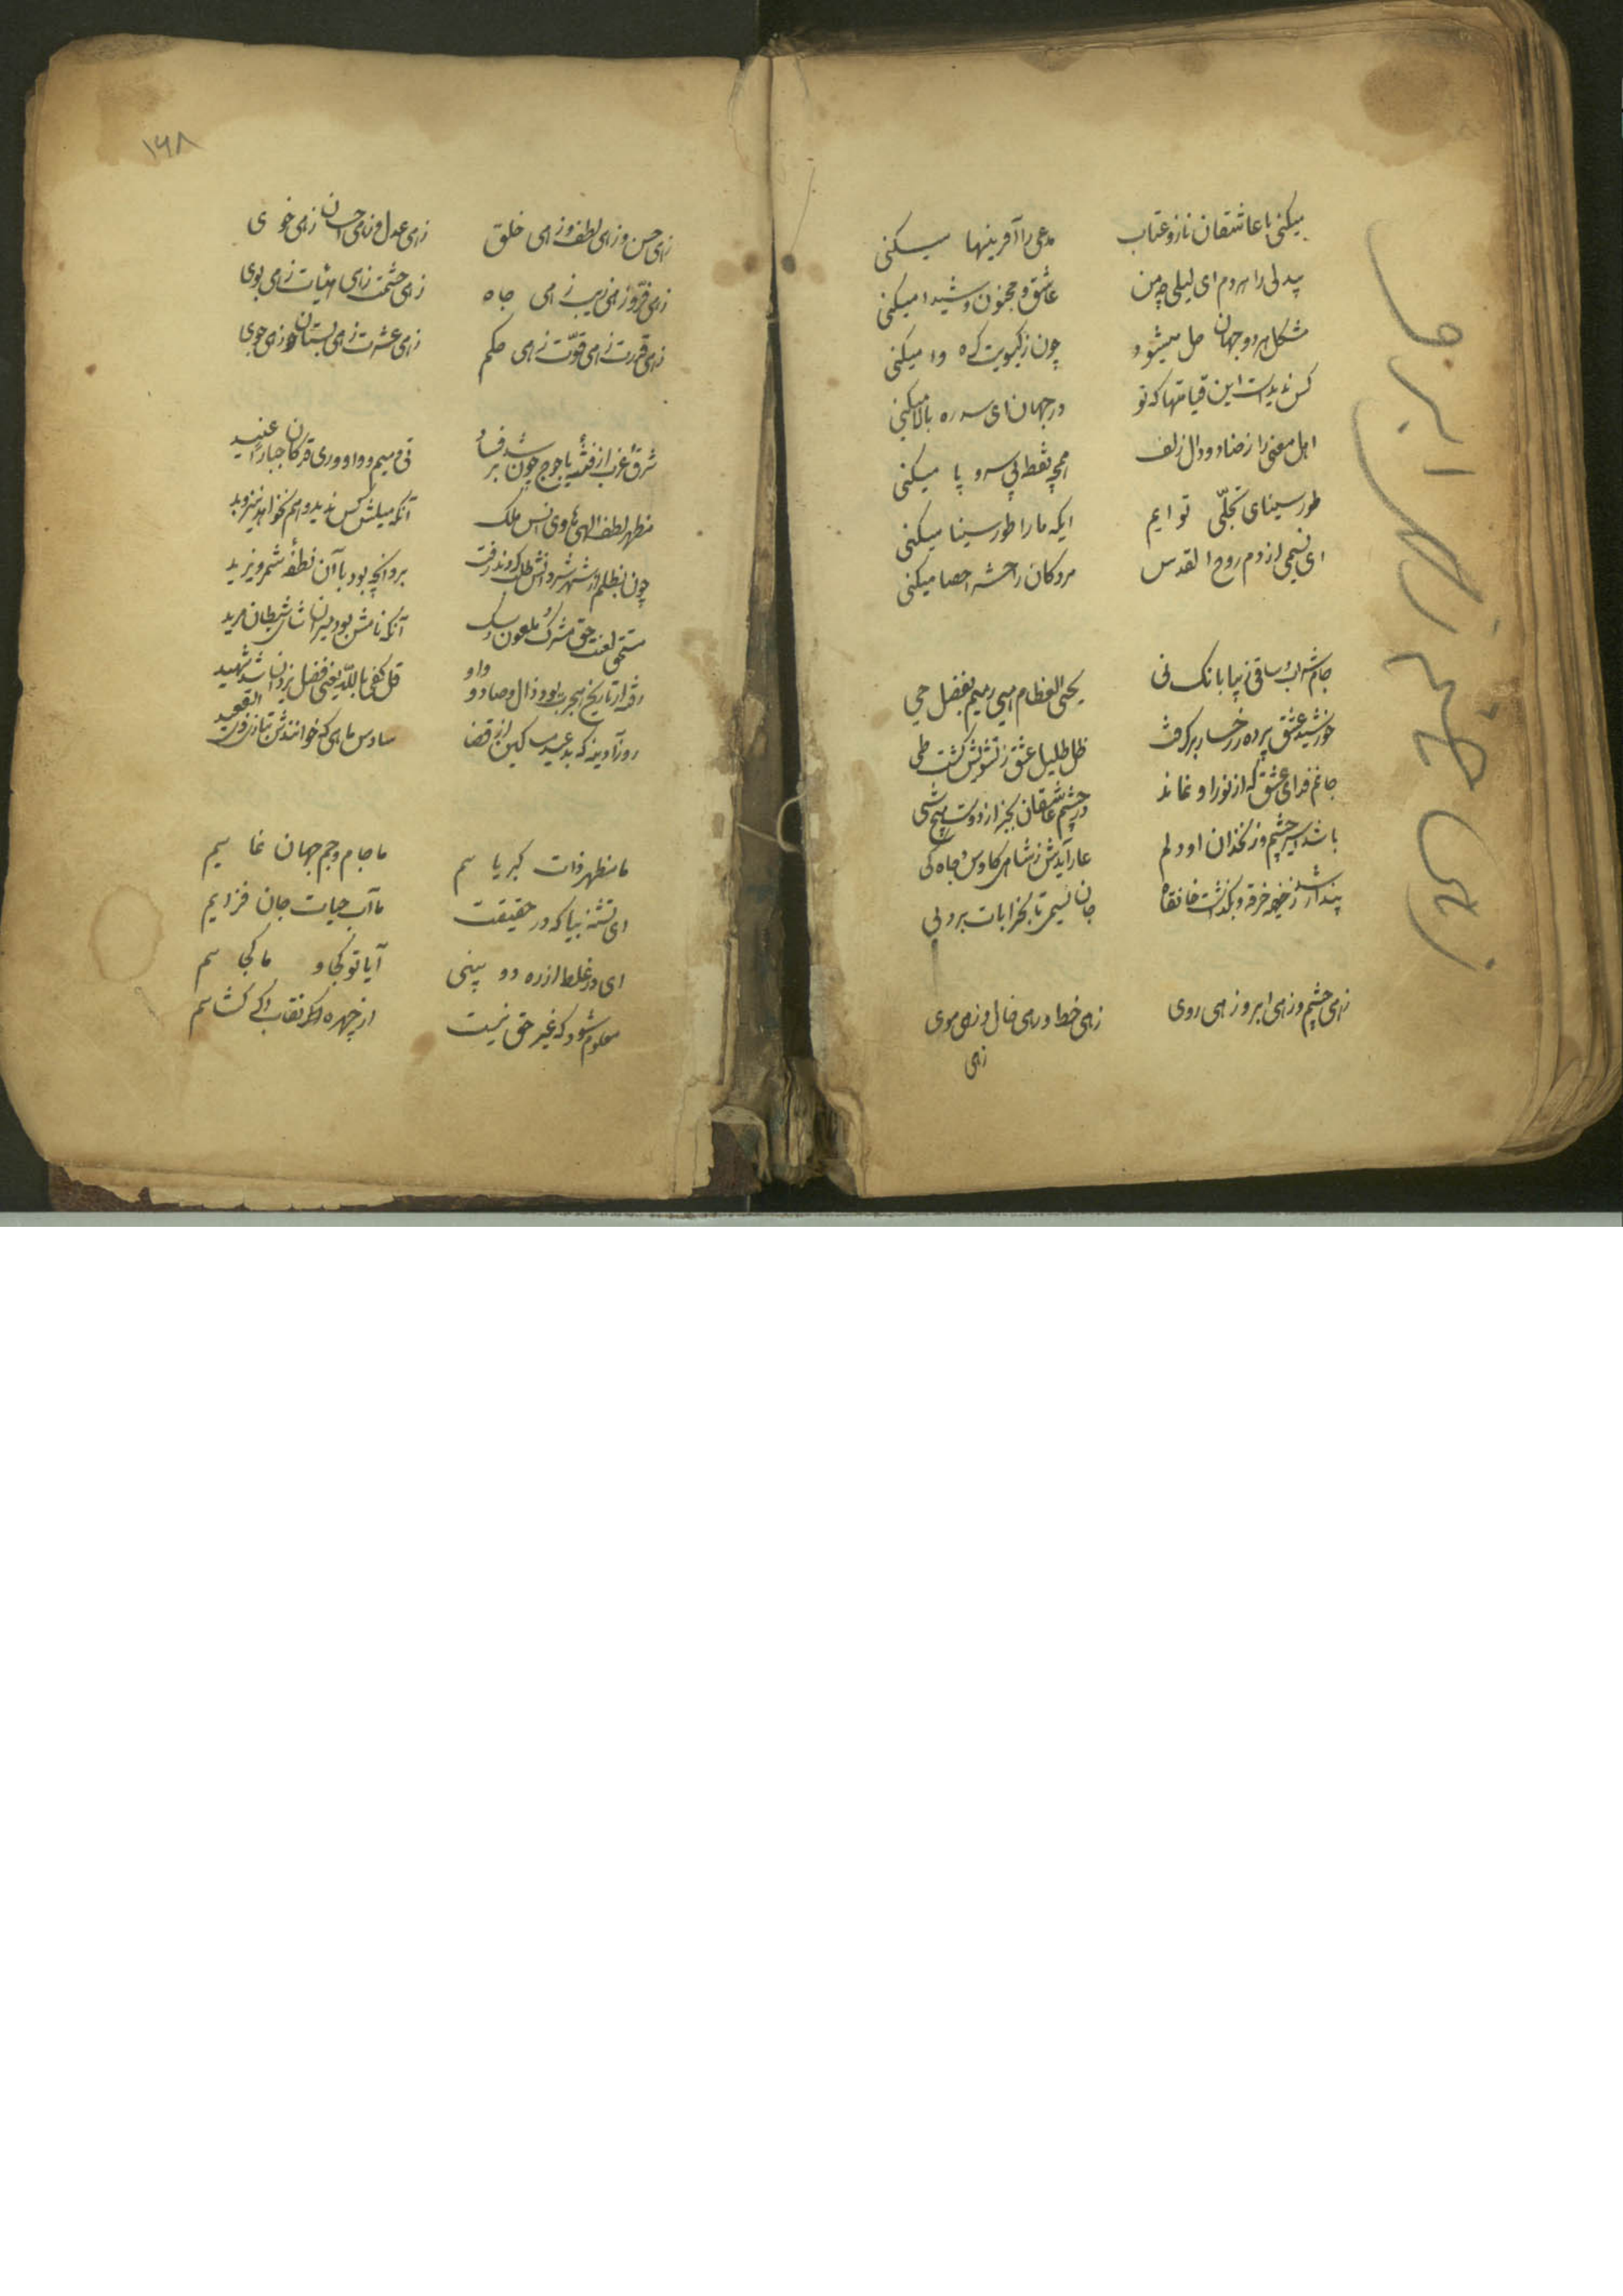 میکنی با عاشقان ناز و عتاب مدعی را آفرینها میکنی
بیدلی را هر دم ای لیلی چو من عاشق و مجنون و شیدا میکنی
مشکل هر دو جهان حل میشود چون ز گیسویت گره وا میکنی
کس ندیدست این قیامتها که تو در جهان ای سرو بالا میکنی
اهل معنی را ز ضاد و دال زلف همچو نقطه بی سر و پا میکنی
طور سینای تجلّی تو ایم ایکه ما را طور سینا میکنی
ای نسیمی از دم روح القدس مردکان را حشر احصا میکنی
جام شراب و ساقی زیبا بانک نی یحیی العظام و هی رمیم بفضل حی
خورشید عشق پرده ز رخسار برگرفت ظل ظلیل عشق ز تشویش گشت طی
جانم فدای عشق که از نور او نماند در چشم عاشقان بجز از دوست هیچ شی
باشد اسیر چشم و زنخدان او دلم عار آیدش ز شاهی کاوس و جاه کی
جان نسیمی تا بخرابات برد پی
زهی چشم و زهی ابرو زهی روی زهی خط و زهی خال و زهی موی
زهی
۱۶۸
زهی حسن و زهی لطف و زهی خلق زهی عدل و زهی احسان زهی خوی
زهی فرّ و زهی زیب زهی جاه زهی حشمت زهی هیات زهی بوی
زهی قدرت زهی قوّت زهی حکم زهی عشرت زهی بستان و زهی جوی
شرق و غرب از فتنهٔ یاجوج چون شد پر فساد
مظهر لطف الهی هادی انس و ملک آنکه مثلش کس ندید و هم نخواهد نیز دید
بر وانچه بود با آن نطفهٔ شمر و یزید
مستحق لعنت حق مشرک و ملعون و سک آنکه نامش بود میران شاه شیطان مرید
رفته از تاریخ هجرت بود ذال و صاد و واو قل کفی بالله یعنی فضل یزدان شد شهید
روز آدینه که بد عید مساکین از قضا سادس ماهی که خوانندش بتازی ذو القعید
ما مظهر ذات کبریاییم ما جام و جم جهان نماییم
ای تشنه بیا که در حقیقت ما آب حیات جان فزاییم
ای در غلط از ره دو بینی آیا تو کجا و ما کجاییم
معلوم شود که غیر حق نیست از چهره اگر نقاب کشاییم